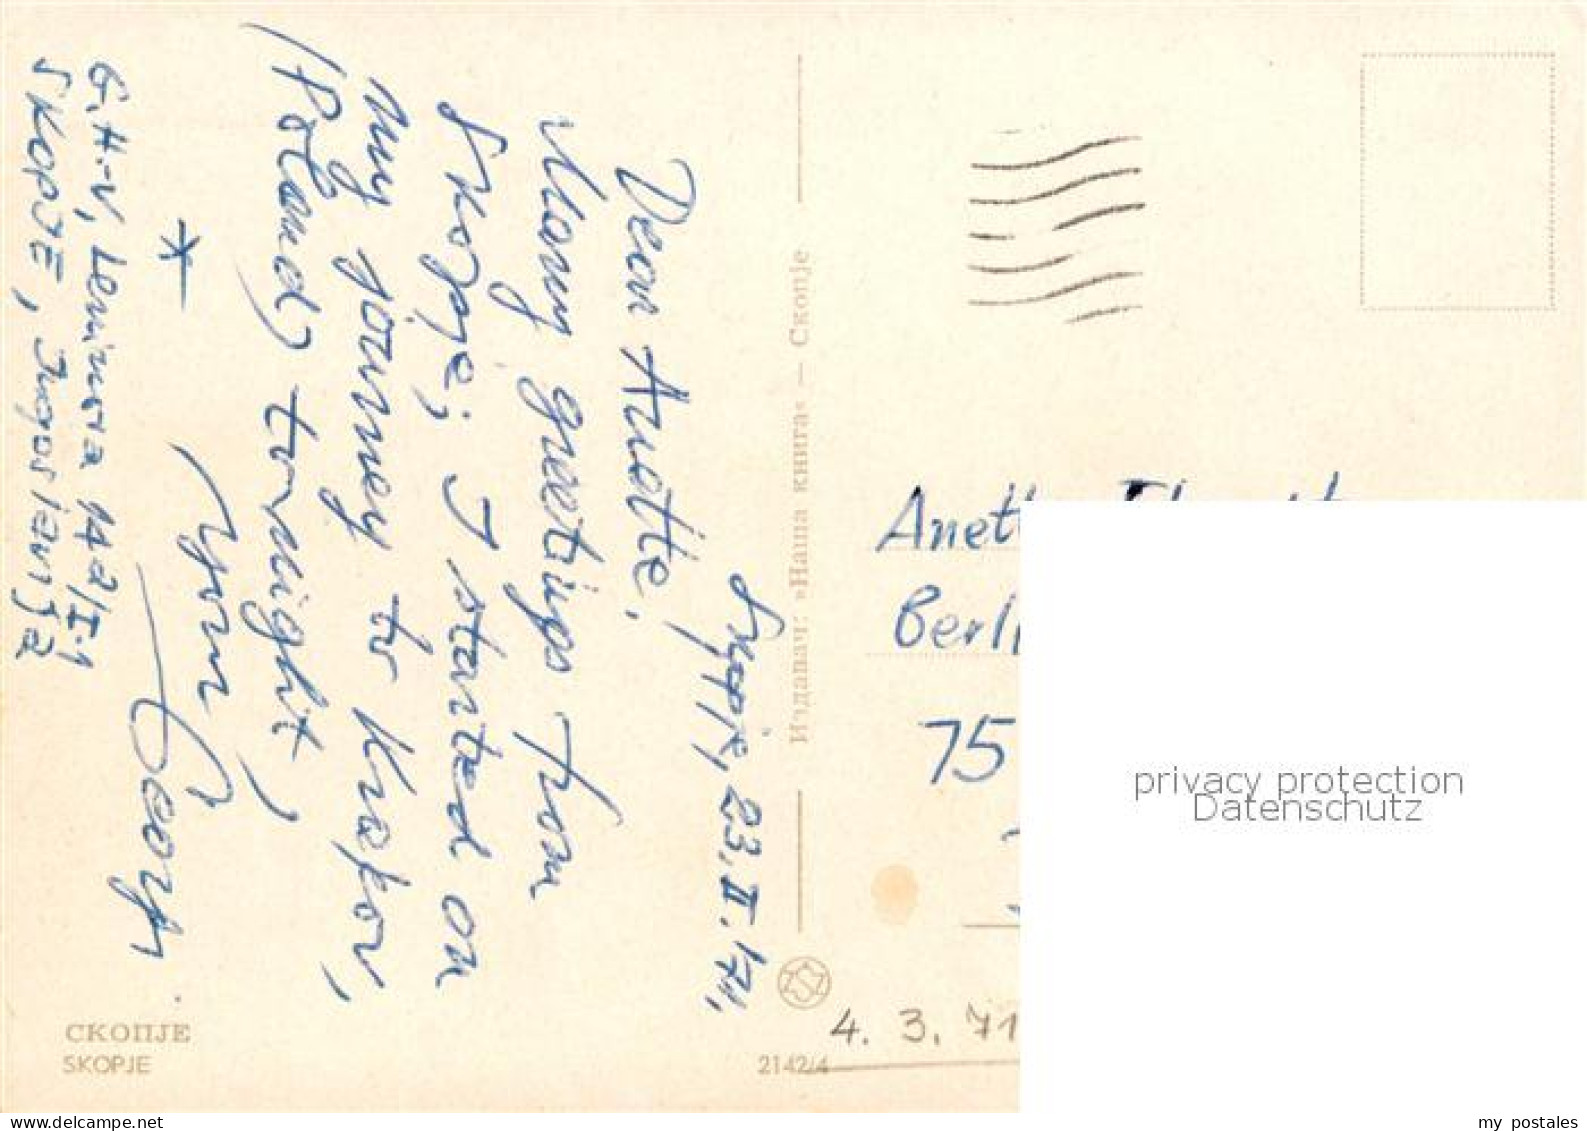 Skopje, 23.II.'71,
Dear Anette,
Many greetings from
Skopje; I started on
my journey to Krakov,
(Poland) to-night,
Your Georg
*
G.H.-V, Leninova 142/I-1
SKOPJE, Jugoslavija
СКОПЈЕ
SKOPJE
Издавач: »Наша книга« — Скопје
2142/4
Anett
Berli
75
4. 3. 71
privacy protection
Datenschutz
my postales